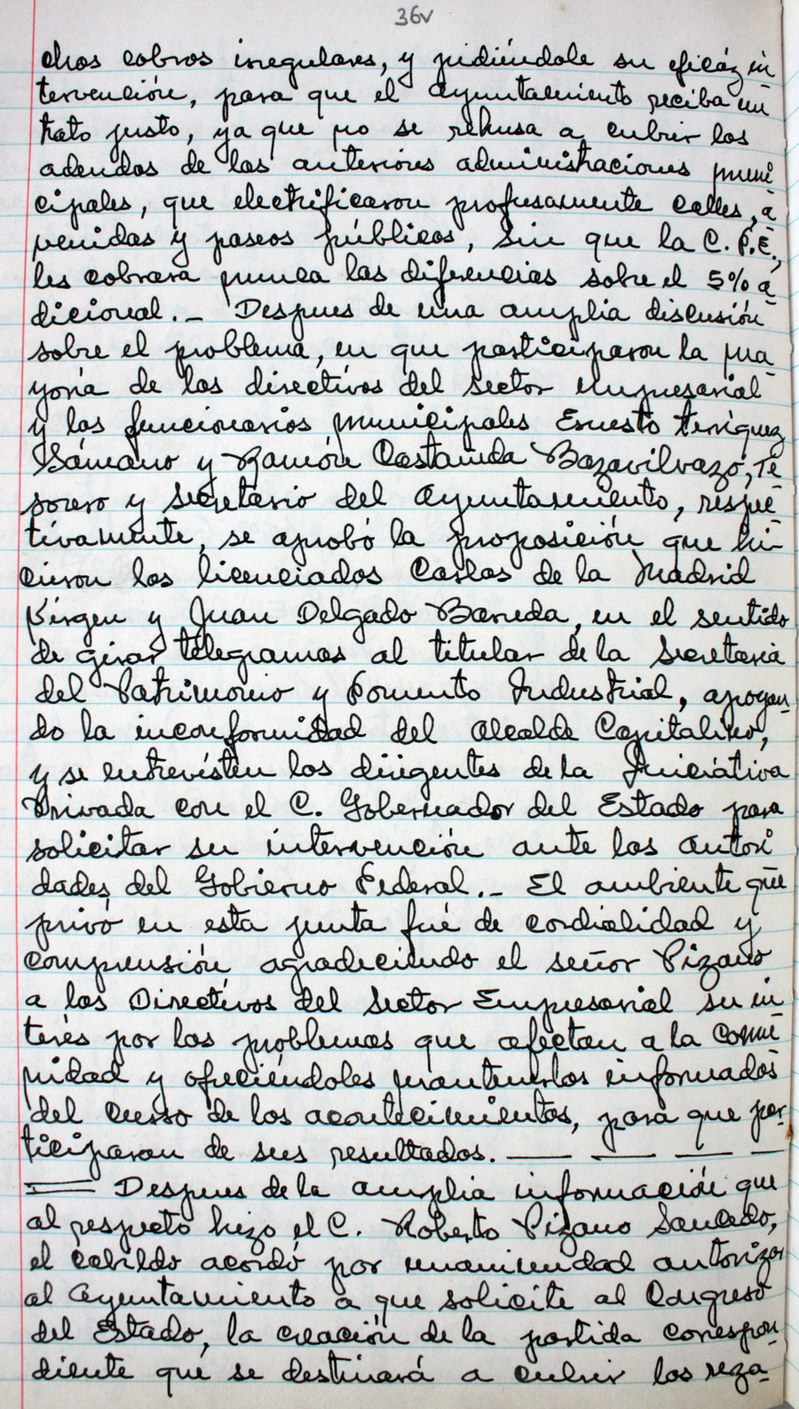 36v
chos cobros irregulares, y pidiéndole su eficáz in
tervención, para que el Ayuntamiento reciba un
trato justo, ya que no se rehusa a cubrir los
adeudos de las anteriores administraciones muni
cipales, que electrificaron profusamente calles, a
venidas y paseos públicos, sin que la C.F.E.,
les cobrara nunca las diferencias sobre el 5% a
dicional.- Despues de una amplia discusión
sobre el problema, en que participaron la ma
yoría de los directivos del sector empresarial
y los funcionarios municipales Ernesto Teríquez
Sámano y Ramón Castañeda Bazavilvazo, Te
sorero y Secretario del Ayuntamiento, respec
tivamente, se aprobó la proposición que hi-
cieron los licenciados Carlos de la Madrid
Virgen y Juan Delgado Barreda, en el sentido
de girar telegramas al titular de la Secretaria
del Patrimonio y Fomento Industrial, apoyan-
do la inconformidad del Alcalde Capitalino,
y se entrevisten los dirigentes de la Iniciativa
Privada con el C. Gobernador del Estado para
solicitar su intervención ante las autori
dades del Gobierno Federal.- El ambiente que
privó en esta junta fué de cordialidad y
comprensión agradeciendo el señor Pizano
a los Directivos del Sector Empresarial su in
terés por los problemas que afectan a la comu
nidad y ofreciéndoles mantenerlos informados
del curso de los acontecimientos, para que par-
ticiparan de sus resultados. — — — —
= Despues de la amplia información que
al respecto hizo el C. Roberto Pizano Saucedo,
el cabildo acordó por unanimidad autorizar
al Ayuntamiento a que solicite al Congreso
del Estado, la creación de la partida correspon-
diente que se destinará a cubrir los reza-